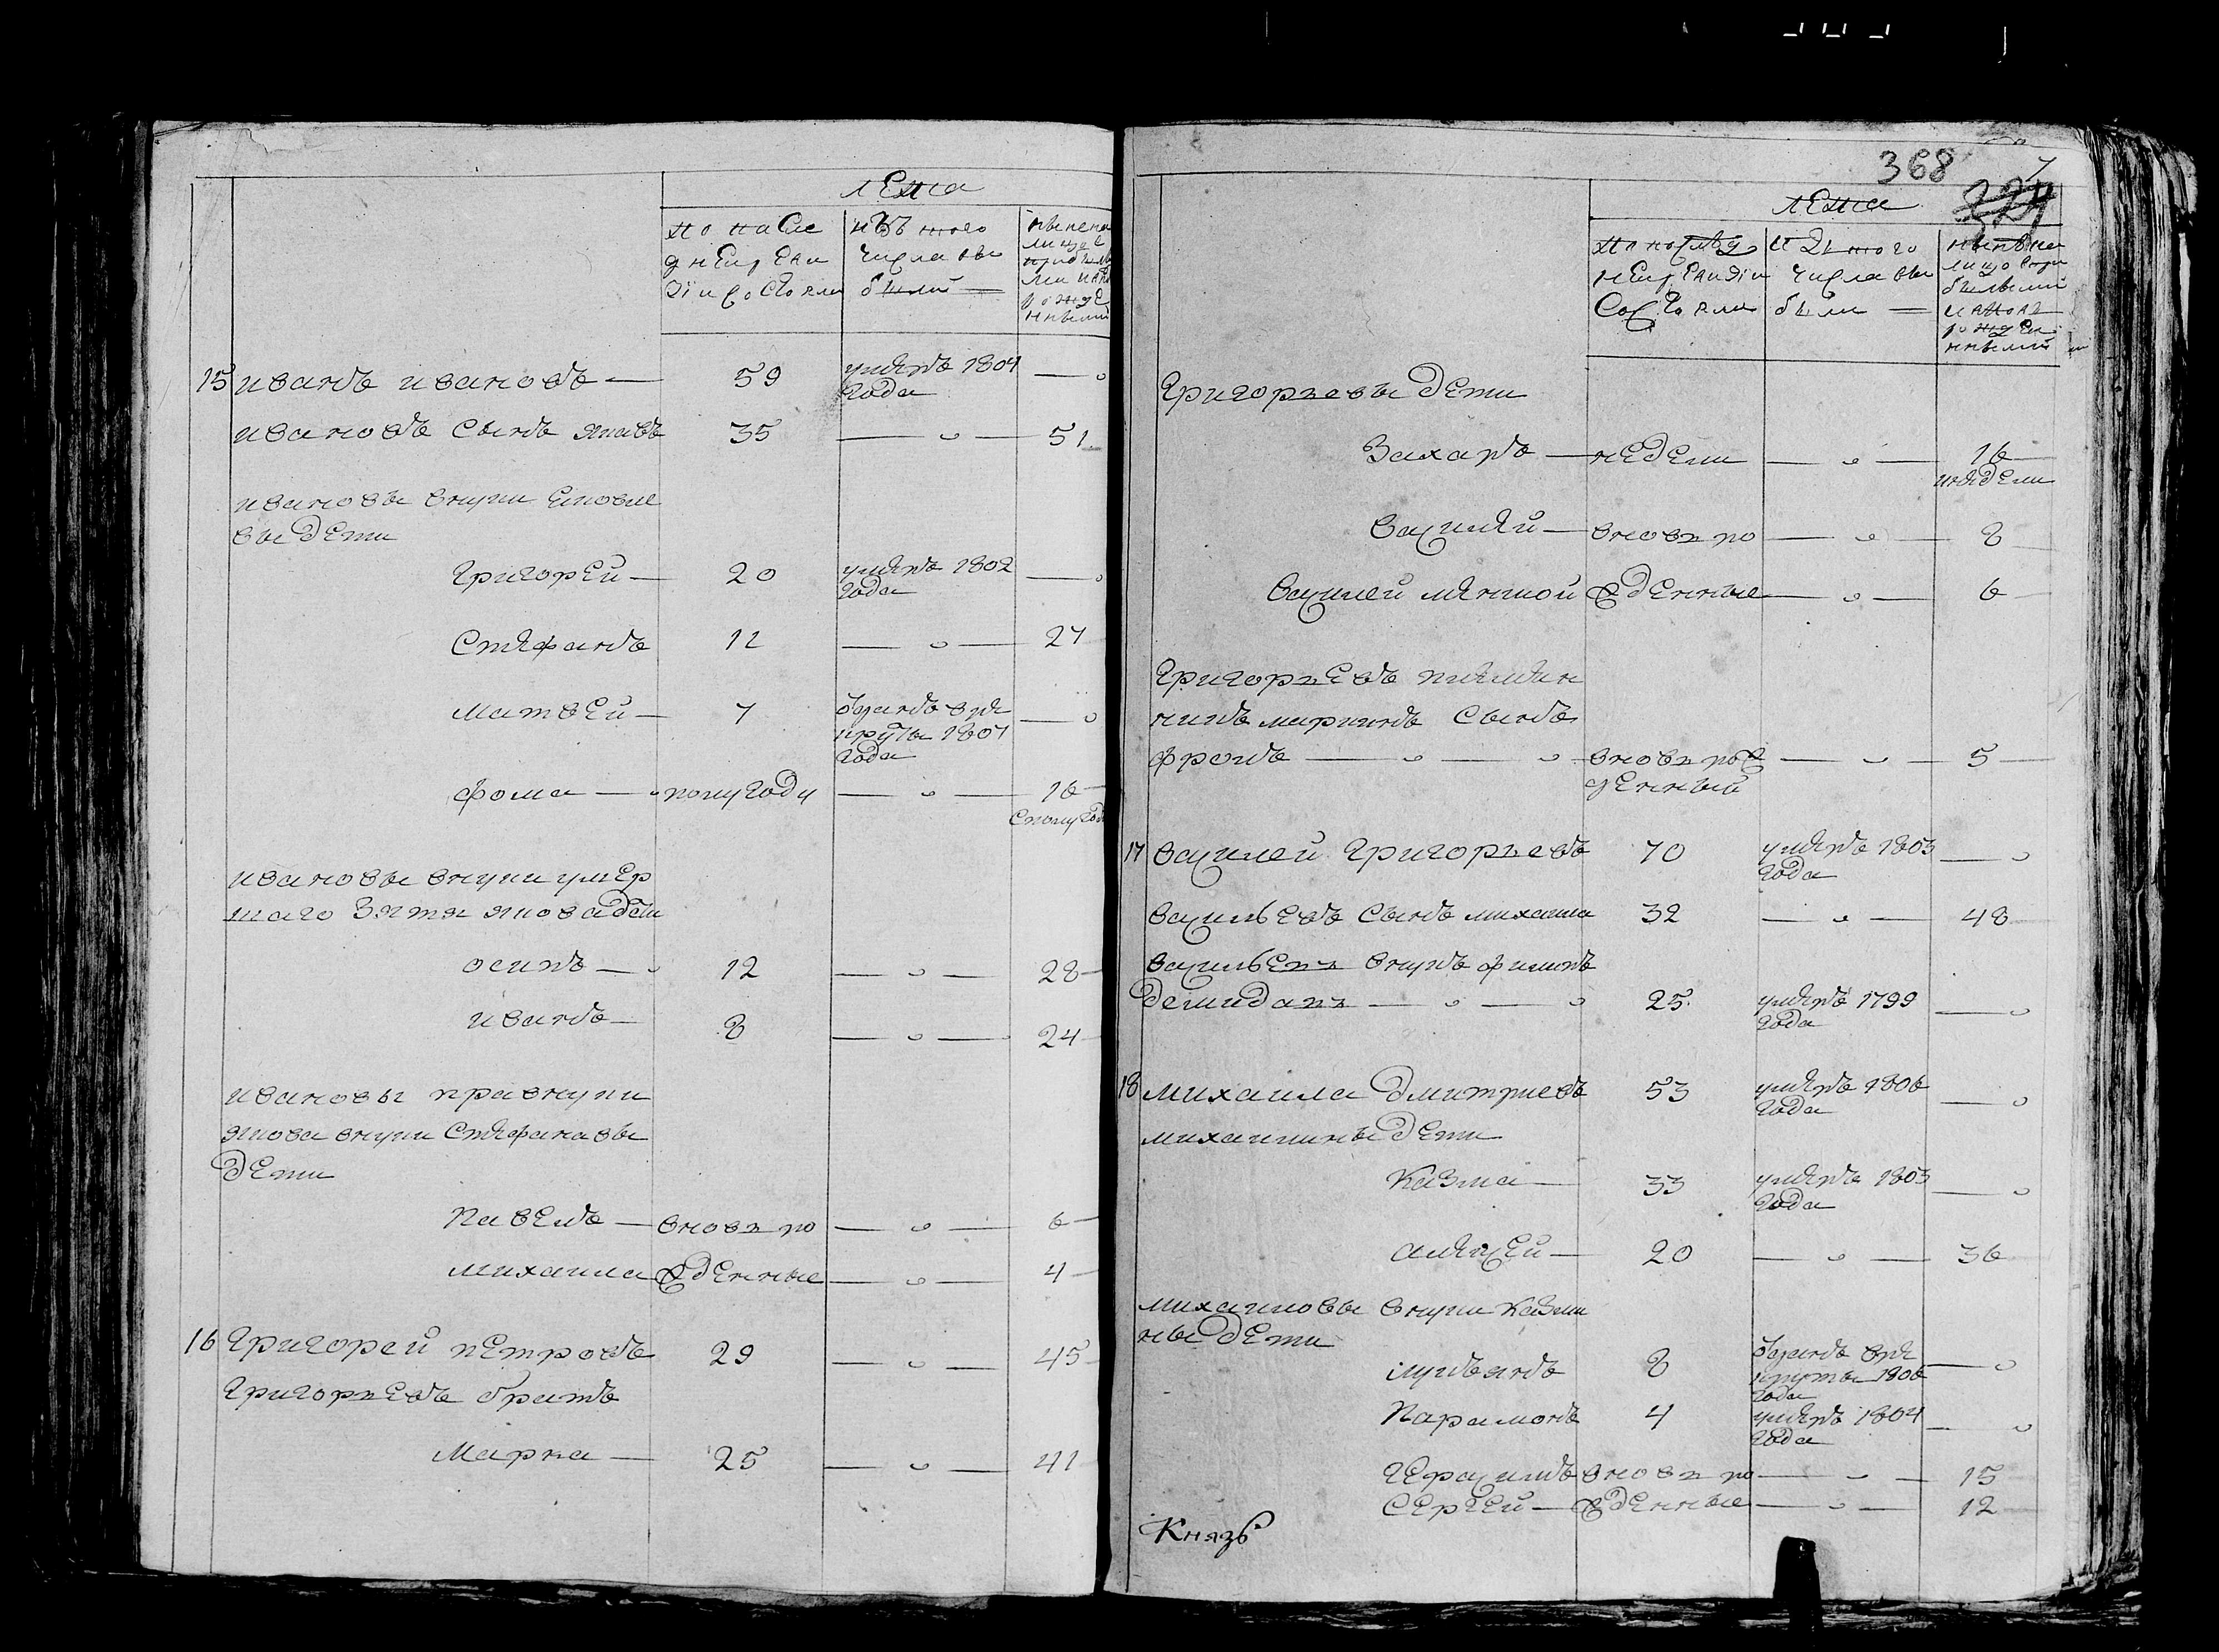 лЕта
по после
днЕй рЕви
зіи состояли
изъ того
числа вы
были
15 иванъ ивановъ — 59 умЯръ 1804 —
года
ивановъ сынъ яковъ 35 — 51
ивановы внуки яковле
вы дЕти
григорЕй — 20 умЯръ 1802 —
года
стЯфанъ 12 — 27
матвЕй — 7 отданъврЯ —
круты 1807
года
фома — полугоду — 16
с полугод
ивановы внуки умЕр
шаго зятя якова дЕти
осипъ — 12 — 28
иванъ — 8 — 24
ивановы правнуки
якова внуки стЯфановы
дЕти
павЕлъ — вновь ро — 6
михаила ждЕнные — 4
16 григорей пЕтровъ 29 — 45
григорьЕвъ братъ
марка — 25 — 41
368
7
224
лЕта
по послЪд
нЕй рЕвизіи
состояли
изъ того
числа вы
были —
нынЪ на
лицо с при
былыми
и новоро
ждЕн
нными
григорьевы дЕти
захаръ — нЕдЕли — 16
инЯдЕли
василЯй — вновь ро — 8
василей мЯншой ждЕнные — 6
григорьЕвъ плЯмЯн
никъ маркинъ сынъ
фролъ — вновь рож — 5
дЕнный
17 василей григорьевъ 70 умЯръ 1803 —
года
васильЕвъ сынъ михаила 32 — 48
васильЕвъ внукъ филипъ
демидовъ — 25 умЯръ 1799 —
года
18 михаила дмитриевъ 53 умЯръ 1806 —
года
михаилины дЕти
казма — 33 умЯръ 1803 —
года
алЯксЕй — 20 — 36
михаиловы внуки казми
ны дЕти
лукьянъ 8 отданъ врЯ —
круты 1806
года
парамонъ 4 умЯръ 1804 —
года
гЕрасимъ вновь ро — 15
сЕргЕй — ждЕнные — 12
Князь